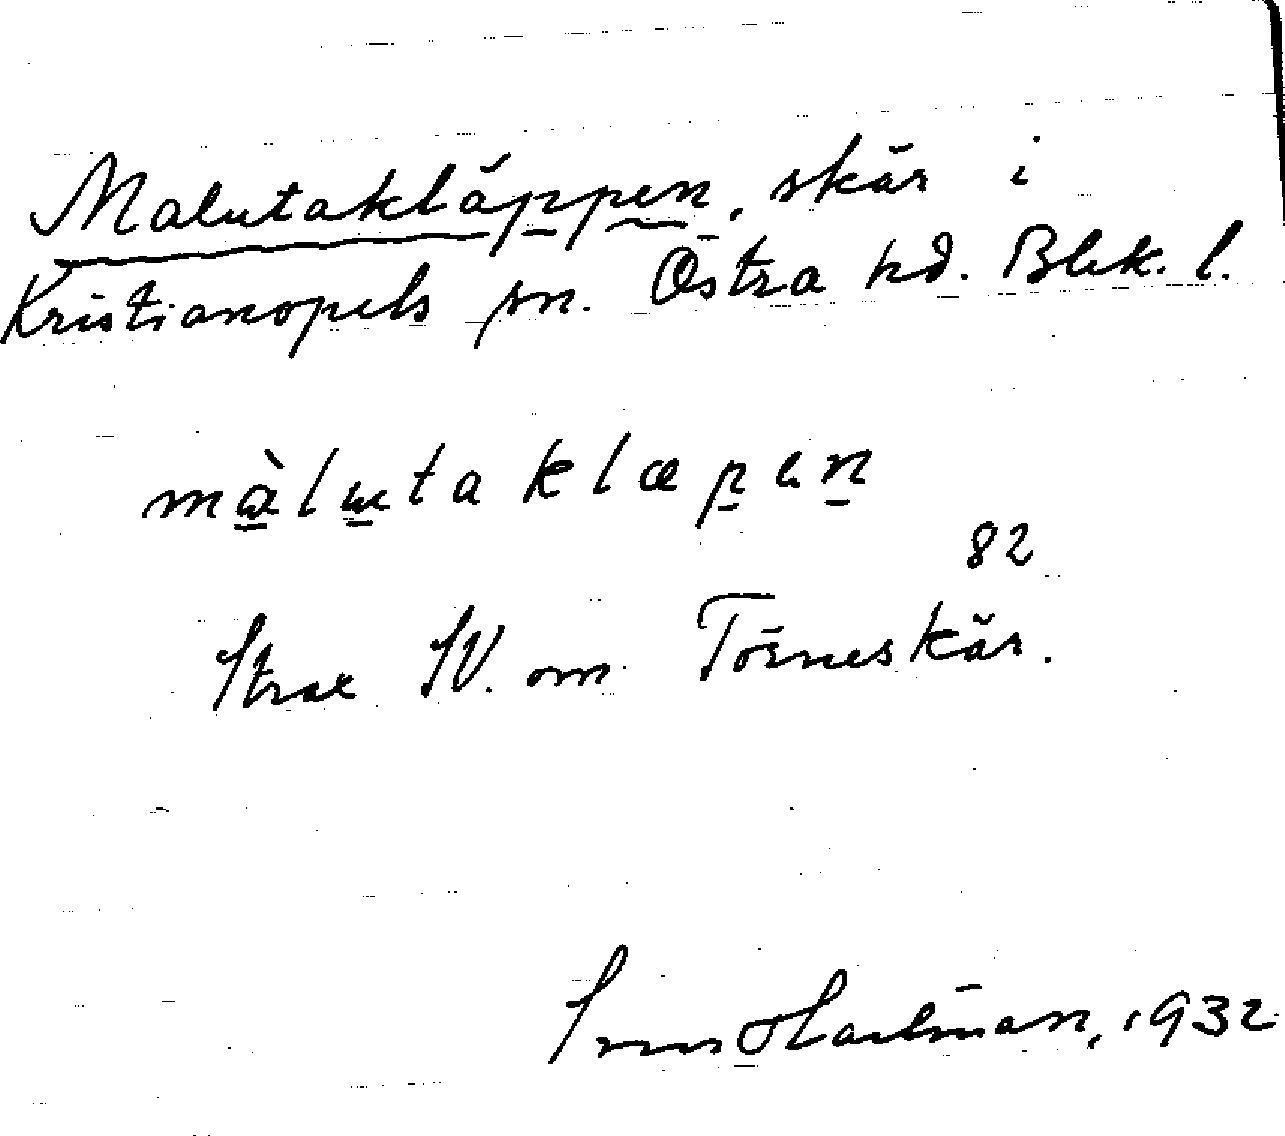 Malutakläppen, skär i
Kristianopels sn. Östra hd. Blek. l.
màlutaklæpen
82
Strax SV. om Törneskär.
Sven Hallman, 1932